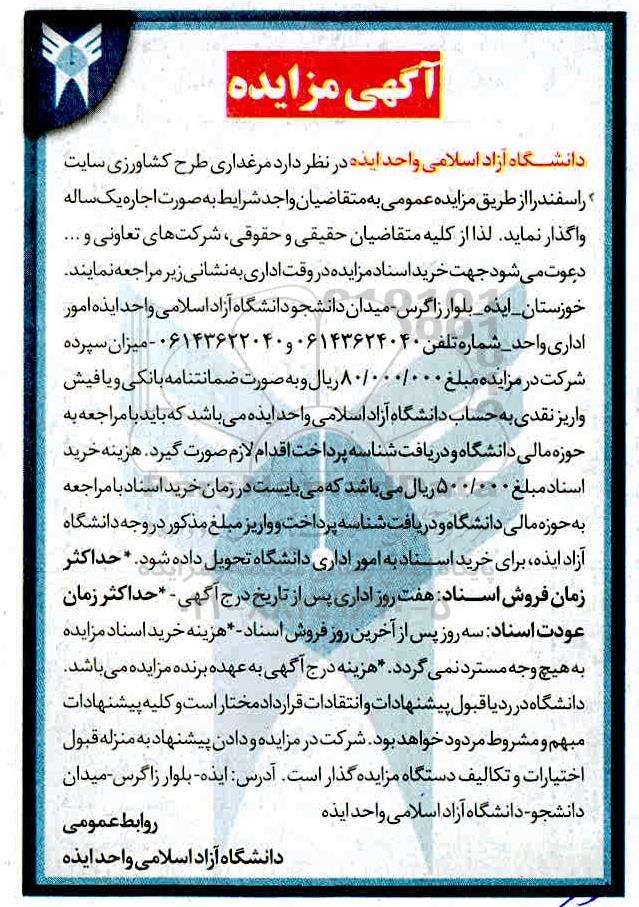 آگهی مزایده
دانشگاه آزاد اسلامی واحد ایذه در نظر دارد مرغداری طرح کشاورزی سایت
راسفند را از طریق مزایده عمومی به متقاضیان واجد شرایط به صورت اجاره یک ساله
واگذار نماید. لذا از کلیه متقاضیان حقیقی و حقوقی، شرکت‌های تعاونی و ...
دعوت می شود جهت خرید اسناد مزایده در وقت اداری به نشانی زیر مراجعه نمایند.
خوزستان_ایذه_بلوار زاگرس-میدان دانشجو دانشگاه آزاد اسلامی واحد ایذه امور
اداری واحد_شماره تلفن ۰۶۱۴۳۶۲۴۰۴۰ و ۰۶۱۴۳۶۲۲۰۴۰ -میزان سپرده
شرکت در مزایده مبلغ ۸۰/۰۰۰/۰۰۰ ریال و به صورت ضمانتنامه بانکی و یا فیش
واریز نقدی به حساب دانشگاه آزاد اسلامی واحد ایذه می باشد که باید با مراجعه به
حوزه مالی دانشگاه و دریافت شناسه پرداخت اقدام لازم صورت گیرد. هزینه خرید
اسناد مبلغ ۵۰۰/۰۰۰ ریال می باشد که می بایست در زمان خرید اسناد با مراجعه
به حوزه مالی دانشگاه و دریافت شناسه پرداخت و واریز مبلغ مذکور در وجه دانشگاه
آزاد ایذه، برای خرید اسناد به امور اداری دانشگاه تحویل داده شود. *حداکثر
زمان فروش اسناد: هفت روز اداری پس از تاریخ درج آگهی - *حداکثر زمان
عودت اسناد: سه روز پس از آخرین روز فروش اسناد-*هزینه خرید اسناد مزایده
به هیچ وجه مسترد نمی گردد. *هزینه درج آگهی به عهده برنده مزایده می باشد.
دانشگاه در رد یا قبول پیشنهادات و انتقادات قرارداد مختار است و کلیه پیشنهادات
مبهم و مشروط مردود خواهد بود. شرکت در مزایده و دادن پیشنهاد به منزله قبول
اختیارات و تکالیف دستگاه مزایده گذار است. آدرس: ایذه-بلوار زاگرس-میدان
دانشجو-دانشگاه آزاد اسلامی واحد ایذه
روابط عمومی
دانشگاه آزاد اسلامی واحد ایذه